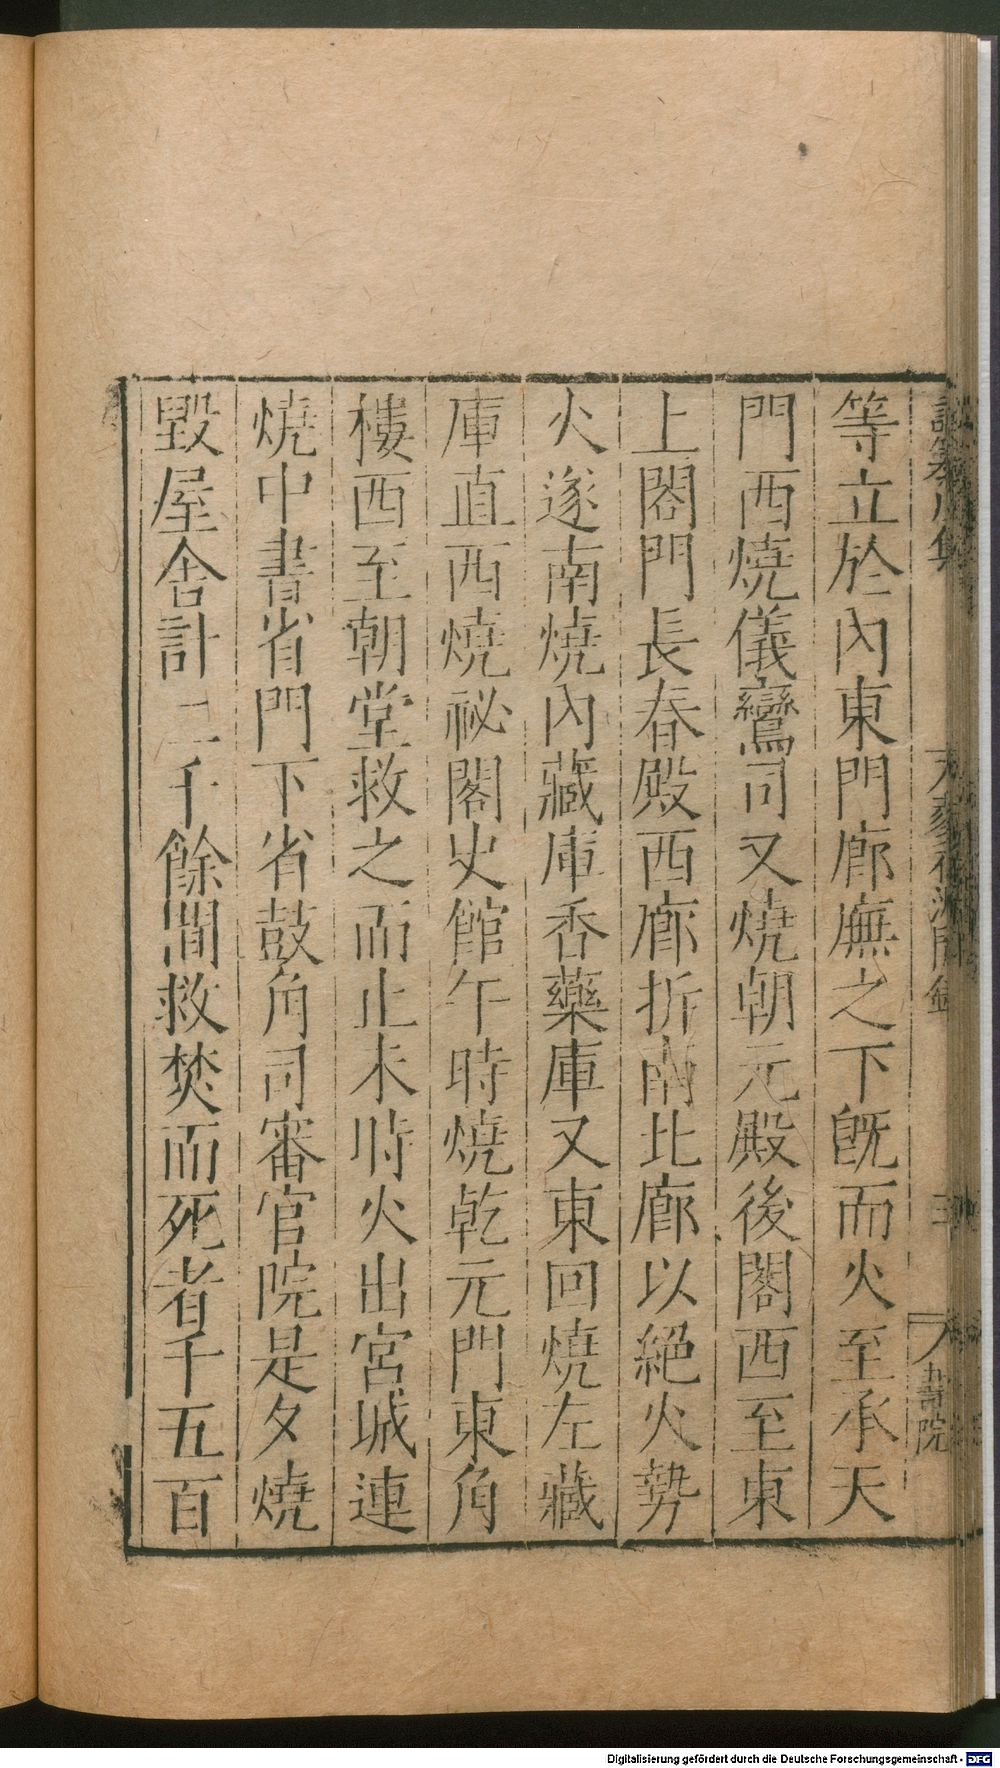 等立於內東門廊廡之下旣而火至承天
門西燒儀鸞司又燒朝元殿後閣西至東
上閤門長春殿西廊折南北廊以絕火勢
火遂南燒內藏庫香藥庫又東回燒左藏
庫直西燒祕閣史館午時燒乾元門東角
樓西至朝堂救之而止未時火出宮城連
燒中書省門下省鼓角司審官院是夕燒
毀屋舍計二千餘間救焚而死者千五百
Digitalisierung gefördert durch die Deutsche Forschungsgemeinschaft - DFG